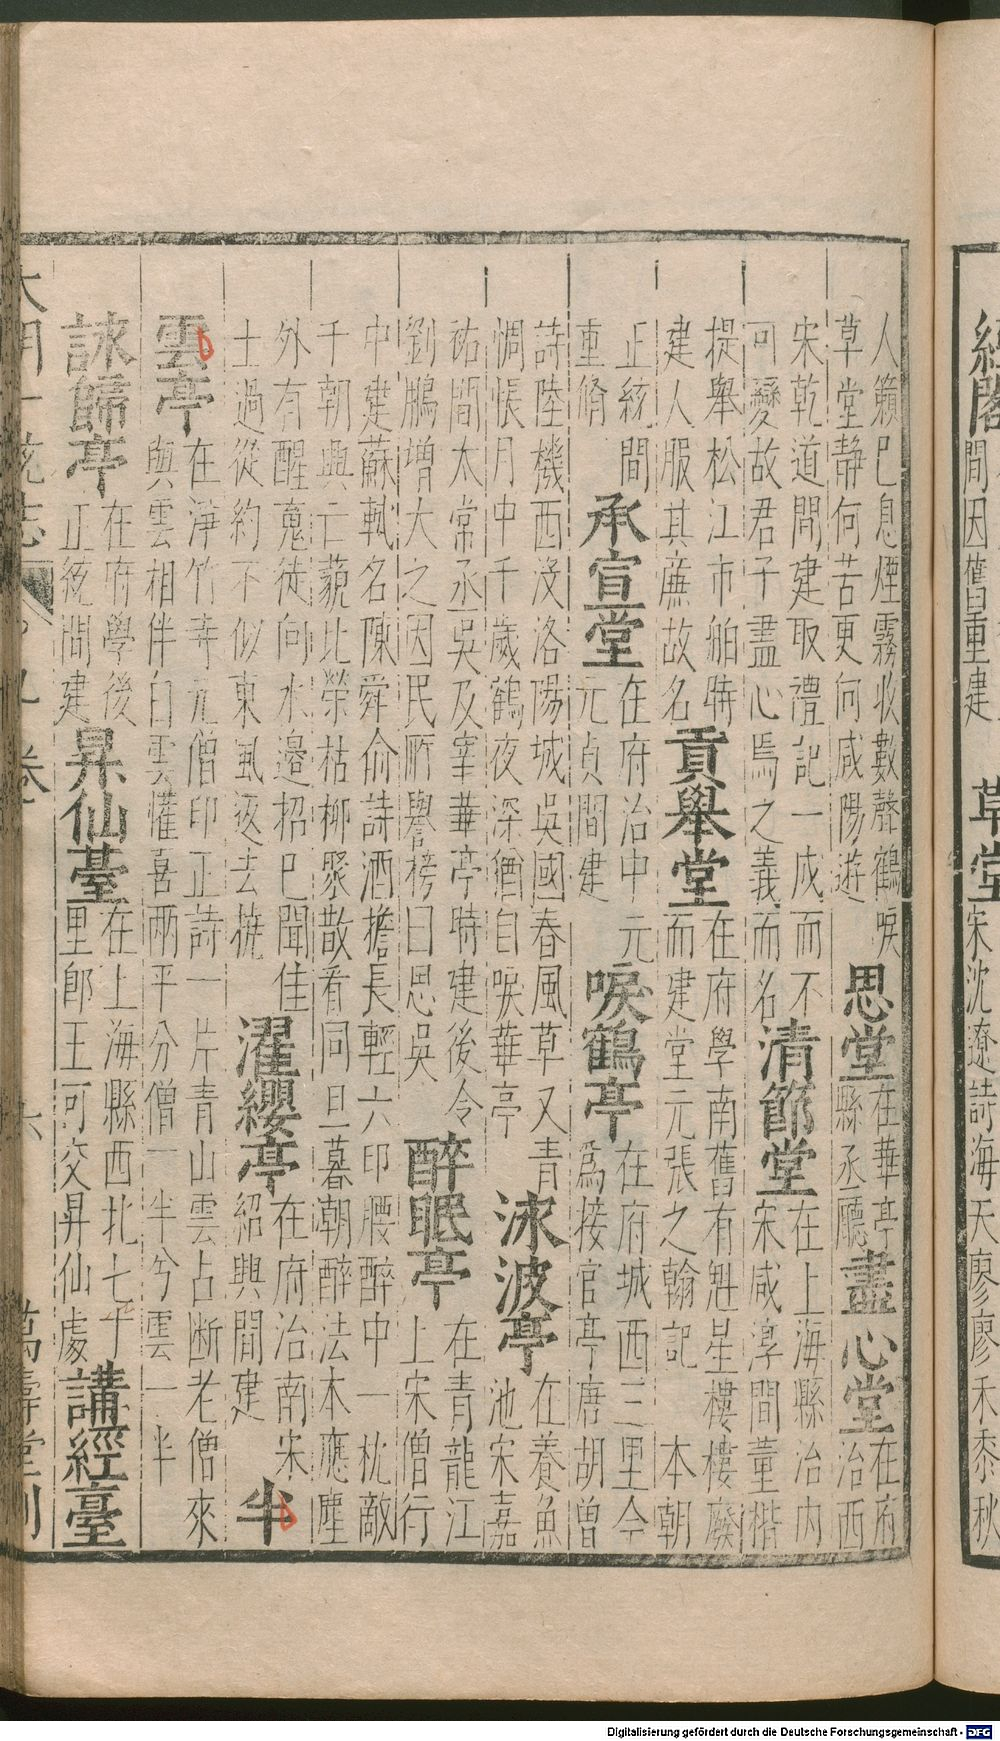 經閣
間因舊重建
草堂
宋沈遼詩海天廖廖禾黍秋
人籟已息煙霧收數聲鶴唳
草堂靜何苦更向咸陽遊
思堂
在華亭
縣丞廳
盡心堂
在府
治西
宋乾道間建取禮記一成而不
可變故君子盡心焉之義而名
清節堂
在上海縣治内
宋咸淳間董楷
提舉松江市舶時
建人服其廉故名
貢舉堂
在府學南舊有魁星樓樓廢
而建堂元張之翰記 本朝
正統間
重脩
承宣堂
在府治中元
元貞間建
唳鶴亭
在府城西三里今
爲接官亭唐胡曾
詩陸機西没洛陽城吳國春風草又青
惆悵月中千歲鶴夜深猶自唳華亭
泳波亭
在養魚
池宋嘉
祐間太常丞吳及宰華亭時建後令
劉鵬增大之因民謳譽榜曰思吳
醉眠亭
在青龍江
上宋僧行
中建蘇軾名陳舜俞詩酒擔長輕六印腰醉中一枕敵
千朝興亡藐比榮枯柳聚散看同旦暮朝醉法本應塵
外有醒蒐徒向水邊招已聞佳
士過從約不似東風返去橈
濯纓亭
在府治南宋
紹興間建
半
雲亭
在淨竹寺元僧印正詩一片青山雲占断老僧來
與雲相伴白雲懽喜兩平分僧一半兮雲一半
詠歸亭
在府學後
正統間建
昇仙臺
在上海縣西北七十
里郎王可交昇仙處
講經臺
大明一統志 九 卷 六 萬壽堂刊
Digitalisierung gefördert durch die Deutsche Forschungsgemeinschaft - DFG